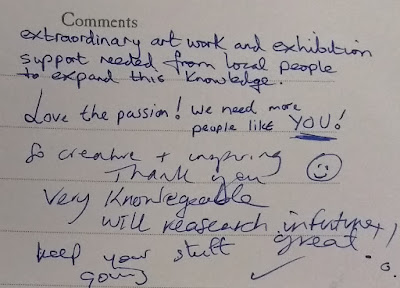 Comments
extraordinary art work and exhibition
support needed from local people
to expand this knowledge.
Love the passion! We need more
people like YOU!
So creative + inspiring
Thank you
Very Knowlegeable
will reasearch in future,
keep your stuff great
going